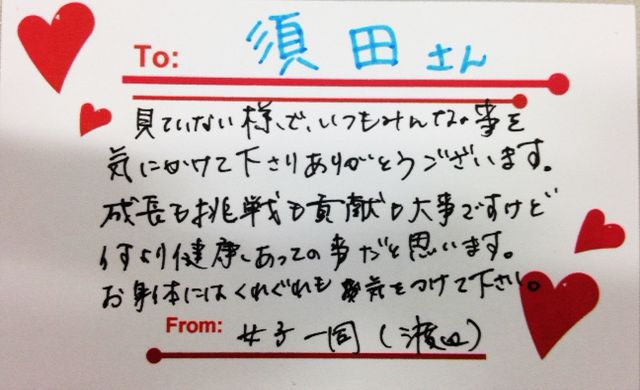 To: 須田さん
見ていない様で、いつもみんなの事を
気にかけて下さりありがとうございます。
成長も挑戦も貢献も大事ですけど
何より健康あっての事だと思います。
お身体にはくれぐれも気をつけて下さい。
From: 女子一同(濱田)